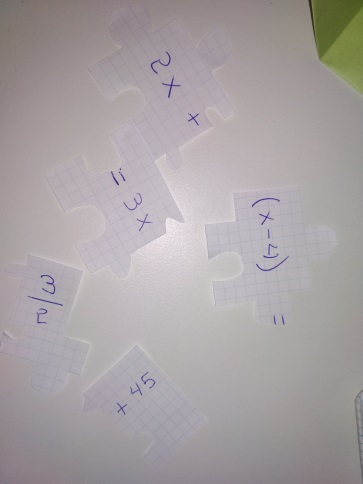 2x +
= 3x
=
3/2
+ 45